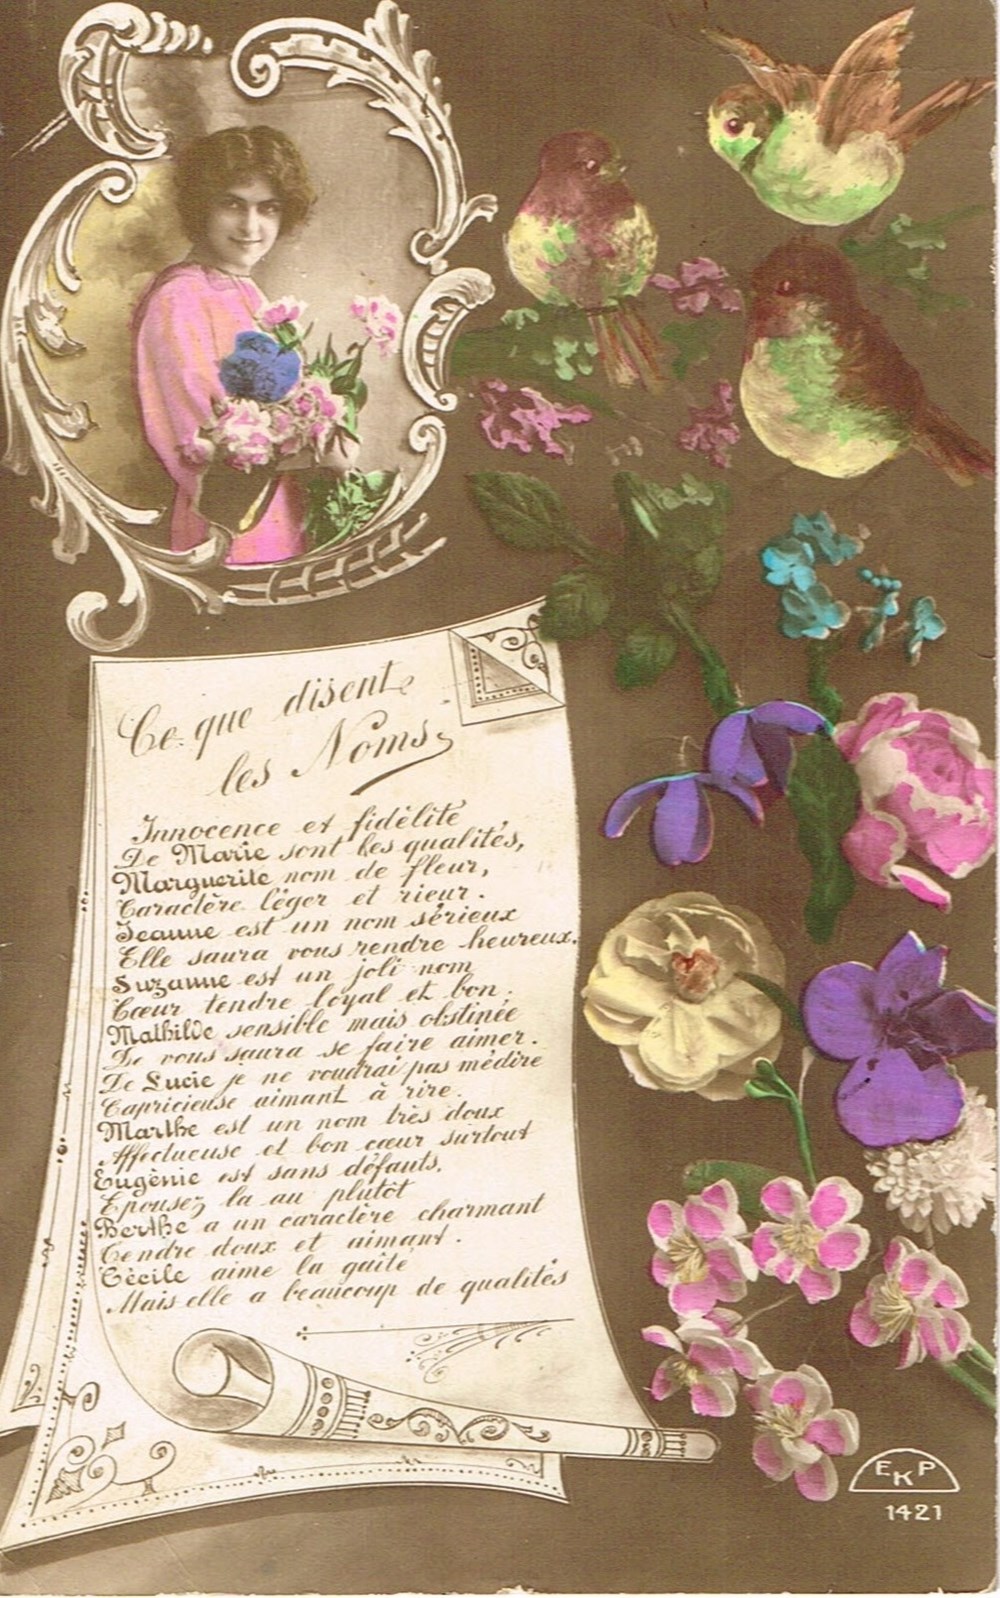 Ce que disent
les Noms
Innocence et fidélité
De Marie sont les qualités,
Marguerite nom de fleur,
Caractère léger et rieur.
Jeanne est un nom sérieux
Elle saura vous rendre heureux.
Suzanne est un joli nom
Cœur tendre loyal et bon,
Mathilde sensible mais obstinée
De vous saura se faire aimer.
De Lucie je ne voudrai pas médire
Capricieuse aimant à rire.
Marthe est un nom très doux
Affectueuse et bon cœur surtout
Eugènie est sans défauts.
Epousez la au plutôt
Berthe a un caractère charmant
Tendre doux et aimant.
Cécile aime la gaîté
Mais elle a beaucoup de qualités
EKP
1421